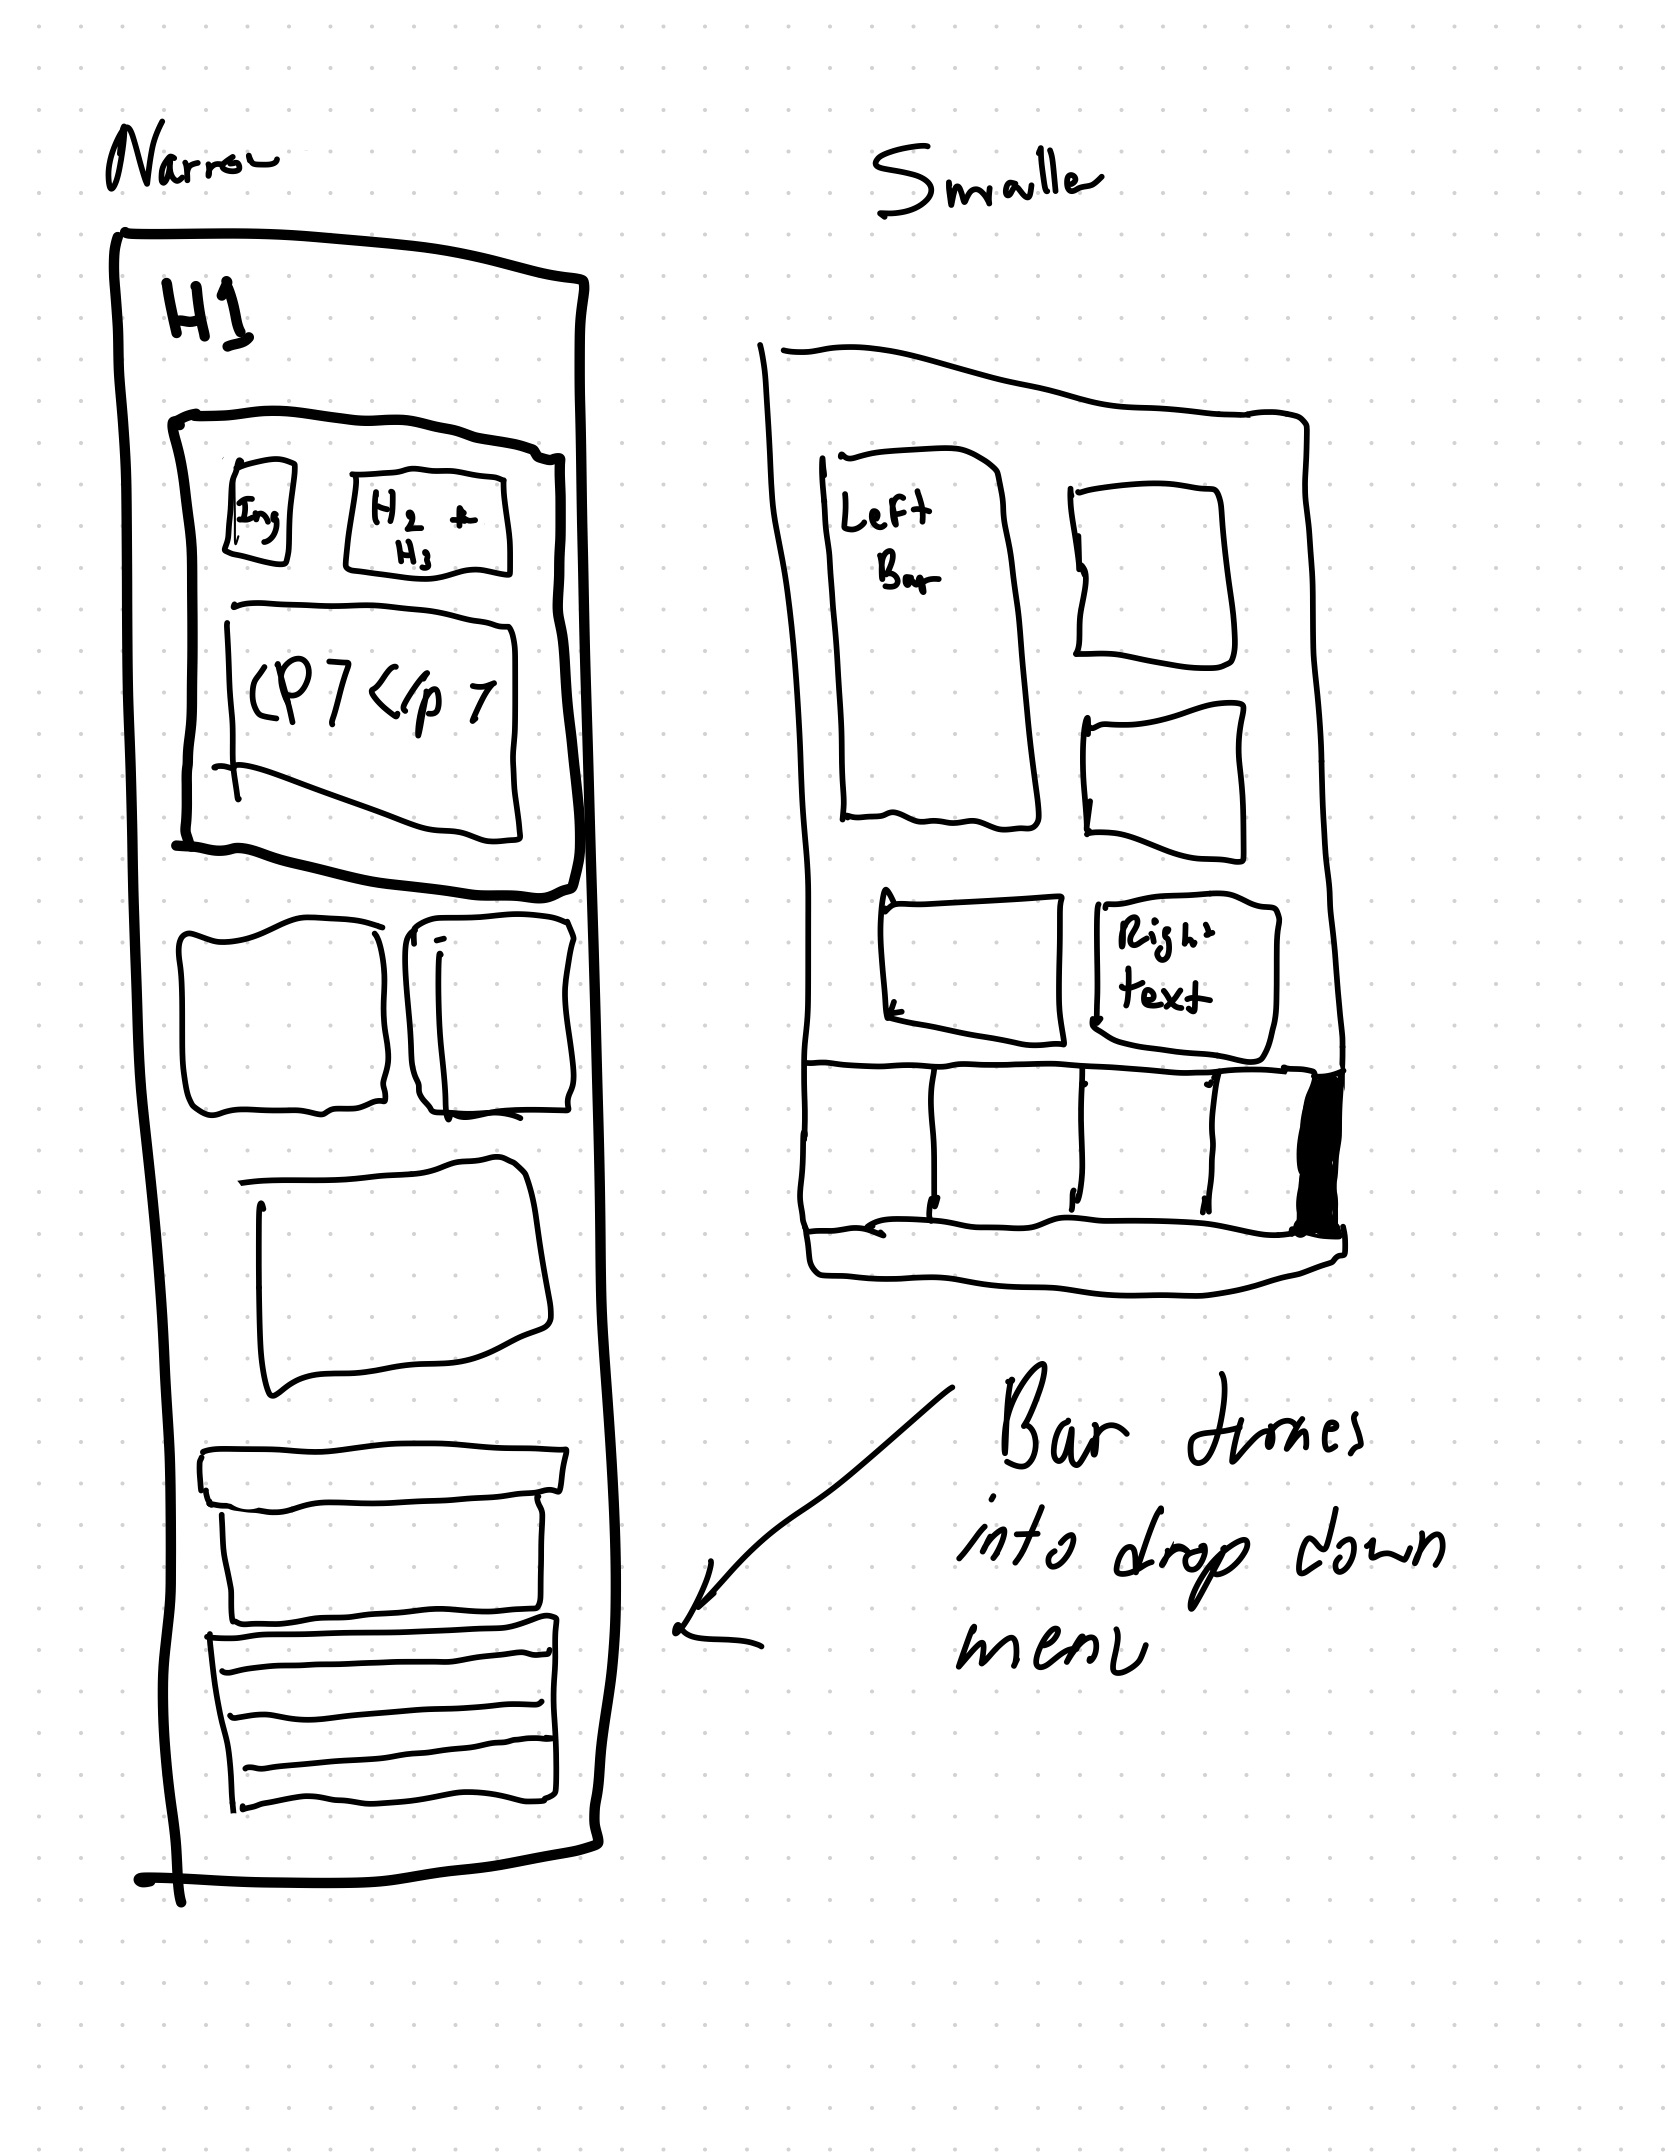 Narrow
Smalle
H1
Img
H2 +
H3
<P> </p>
Left
Bar
Right
text
Bar turnes
into drop down
menu